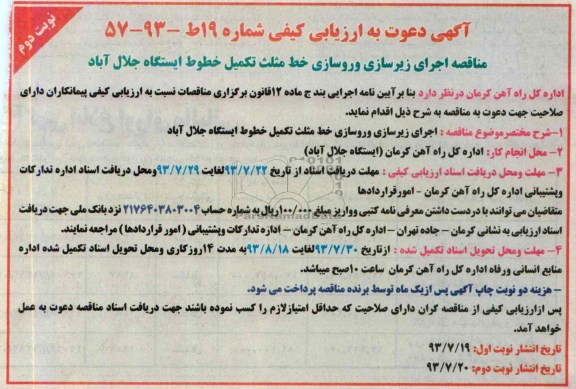 نوبت دوم
آگهی دعوت به ارزیابی کیفی شماره ۱۹ط -۹۳-۵۷
مناقصه اجرای زیرسازی وروسازی خط مثلث تکمیل خطوط ایستگاه جلال آباد
اداره کل راه آهن کرمان درنظر دارد بنا برآیین نامه اجرایی بند ج ماده ۱۲قانون برگزاری مناقصات نسبت به ارزیابی کیفی پیمانکاران دارای
صلاحیت جهت دعوت به مناقصه به شرح ذیل اقدام نماید.
۱-شرح مختصرموضوع مناقصه : اجرای زیرسازی وروسازی خط مثلث تکمیل خطوط ایستگاه جلال آباد
۲- محل انجام کار: اداره کل راه آهن کرمان (ایستگاه جلال آباد)
۳- مهلت ومحل دریافت اسناد ارزیابی کیفی : مهلت دریافت اسناد از تاریخ ۹۳/۷/۲۲لغایت ۹۳/۷/۲۹ومحل دریافت اسناد اداره تدارکات
وپشتیبانی اداره کل راه آهن کرمان - امورقراردادها
متقاضیان می توانند با دردست داشتن معرفی نامه کتبی وواریز مبلغ ۱۰۰/۰۰۰ریال به شماره حساب ۲۱۷۶۴۰۳۸۰۳۰۰۴ نزد بانک ملی جهت دریافت
اسناد ارزیابی به نشانی کرمان - جاده تهران - اداره کل راه آهن کرمان - اداره تدارکات وپشتیبانی ( امور قراردادها ) مراجعه نمایند.
۴- مهلت ومحل تحویل اسناد تکمیل شده : ازتاریخ ۹۳/۷/۳۰لغایت ۹۳/۸/۱۸به مدت ۱۴روزکاری ومحل تحویل اسناد تکمیل شده اداره
منابع انسانی ورفاه اداره کل راه آهن کرمان ساعت ۱۰صبح میباشد.
- هزینه دو نوبت چاپ آگهی پس ازیک ماه توسط برنده مناقصه پرداخت می شود.
پس ازارزیابی کیفی از مناقصه گران دارای صلاحیت که حداقل امتیازلازم را کسب نموده باشند جهت دریافت اسناد مناقصه دعوت به عمل
خواهد آمد.
تاریخ انتشار نوبت اول: ۹۳/۷/۱۹
تاریخ انتشار نوبت دوم: ۹۳/۷/۲۰